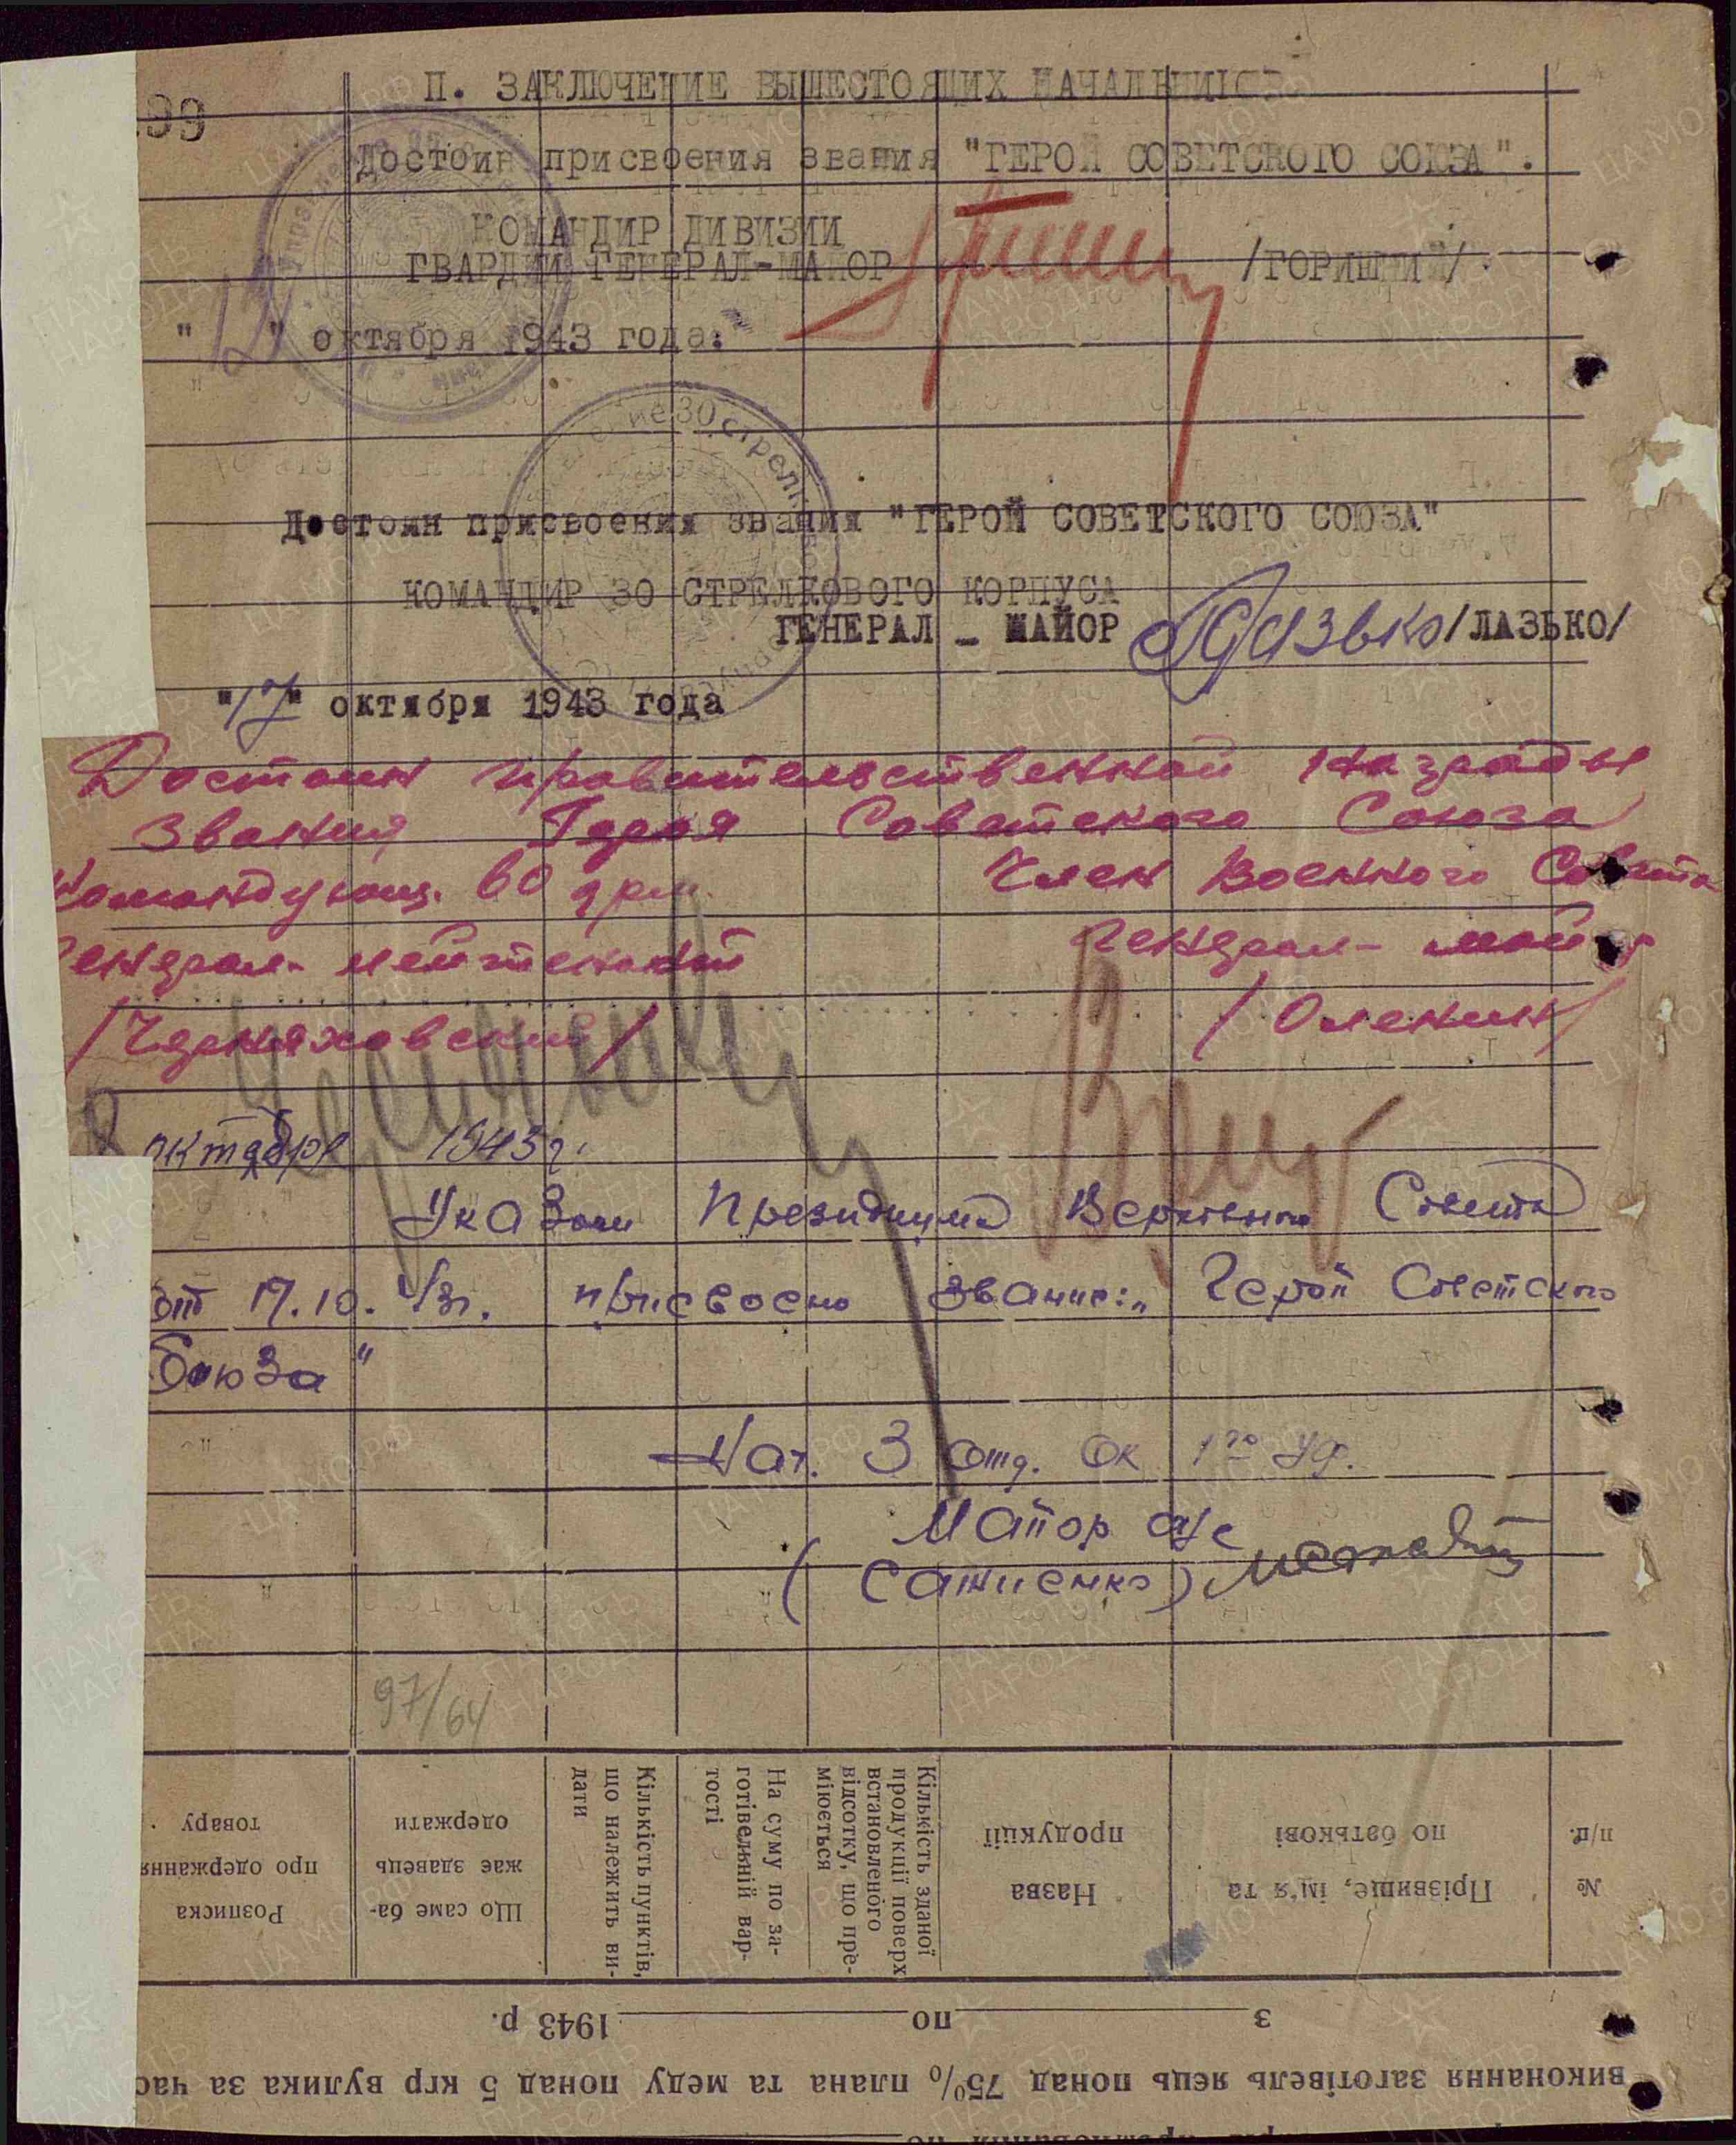 99
П. ЗАКЛЮЧЕНИЕ ВЫШЕСТОЯЩИХ НАЧАЛЬНИКОВ
Достоин присвоения звания "ГЕРОЙ СОВЕТСКОГО СОЮЗА".
КОМАНДИР ДИВИЗИИ
ГВАРДИИ ГЕНЕРАЛ-МАЙОР /ГОРИШНИЙ/
"12" октября 1943 года:
Достоин присвоения звания "ГЕРОЙ СОВЕТСКОГО СОЮЗА"
КОМАНДИР 30 СТРЕЛКОВОГО КОРПУСА
ГЕНЕРАЛ - МАЙОР Лазько /ЛАЗЬКО/
"17" октября 1943 года
Достоин правительственной награды
звания Героя Советского Союза
Командующ. 60 арм. Член Военного Совета
Генерал-лейтенант Генерал-майор
/Черняховский/ /Оленин/
октября 1943 г.
Указом Президиума Верховного Совета
от 17.10.43г. присвоено звание: „Герой Советского
Союза"
Нач. 3 отд. ОК 1го Уф.
Майор а/с
(Сатиенко)
97/64
№ п/п.
Прізвище, ім'я та по батькові
Назва продукції
Кількість зданої продукції поверх встановленого відсотку, що преміюється
На суму по заготівельній вартості
Кількість пунктів, що належить видати
Що саме бажає здавець одержати
Розписка про одержання товару
з по 1943 р.
виконання заготівель яєць понад 75% плана та меду понад 5 кгр вулика за час